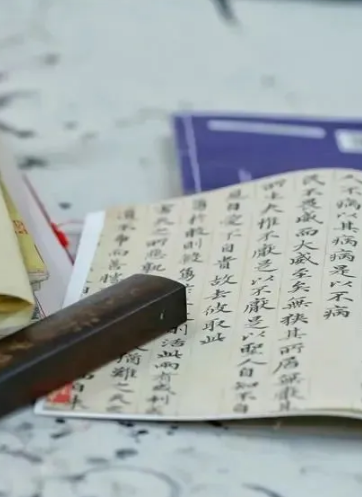 人不病以其病是以不病
民不畏威而大威至矣無狹其所居無厭其
所生夫惟不厭是以不厭是以聖人自知不自
見自愛不自貴故去彼取此
勇於敢則殺勇活此兩者或利
害天之所惡孰猶難之天之
道不爭而善勝自來